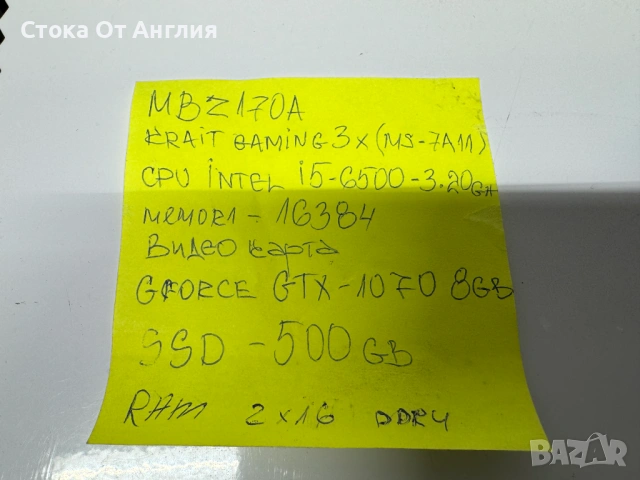 Стока От Англия
MBZ170A
KRAIT GAMING 3x (MS-7A11)
CPU INTEL i5-6500-3.20GH
MEMORI - 16384
ВИДЕО карта
GFORCE GTX-1070 8GB
SSD - 500GB
RAM 2x16 DDR4
BAZAR